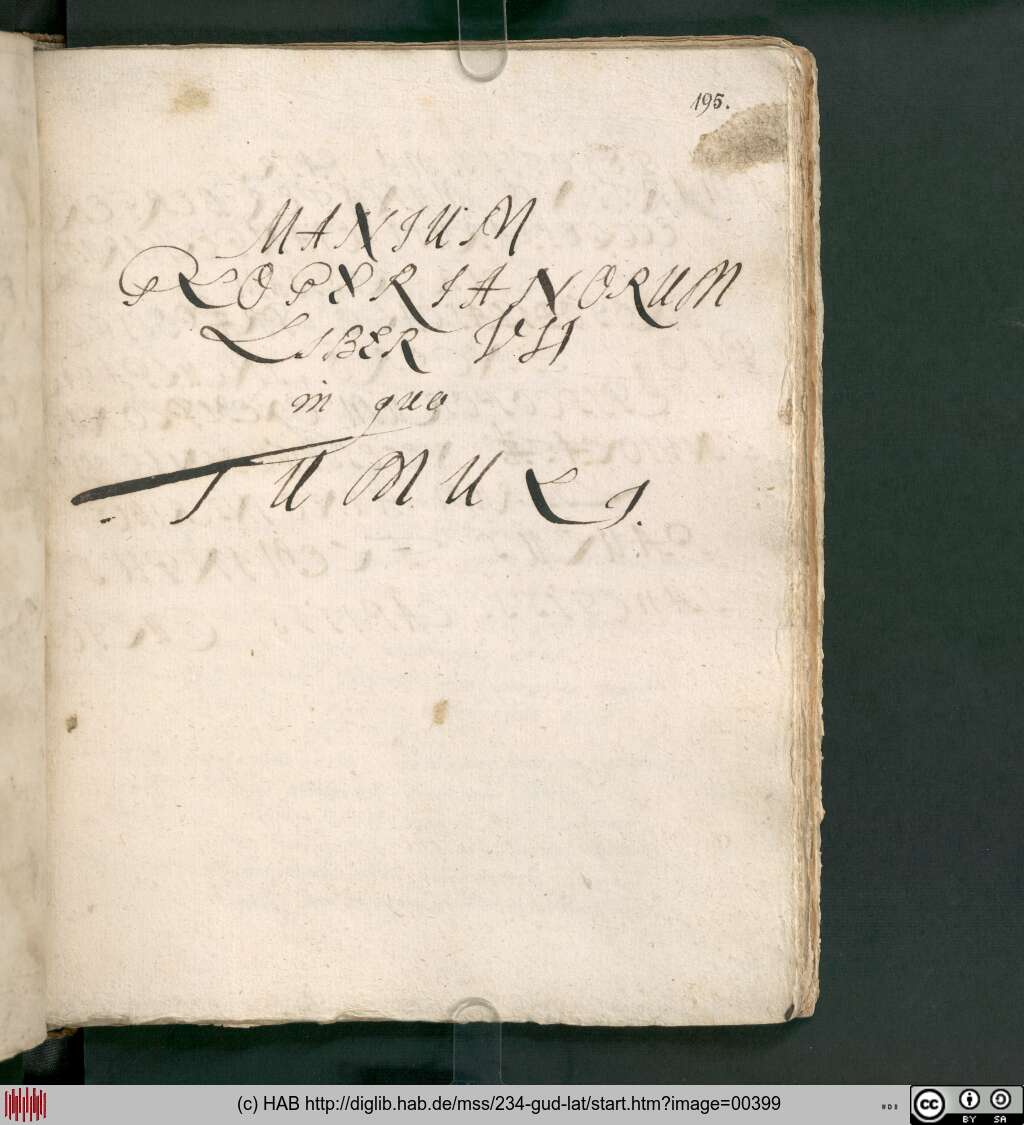 195.
MANIUM
PROPERIANORUM
LIBER VII
in quo
TUMULI.
(c) HAB http://diglib.hab.de/mss/234-gud-lat/start.htm?image=00399
cc BY SA